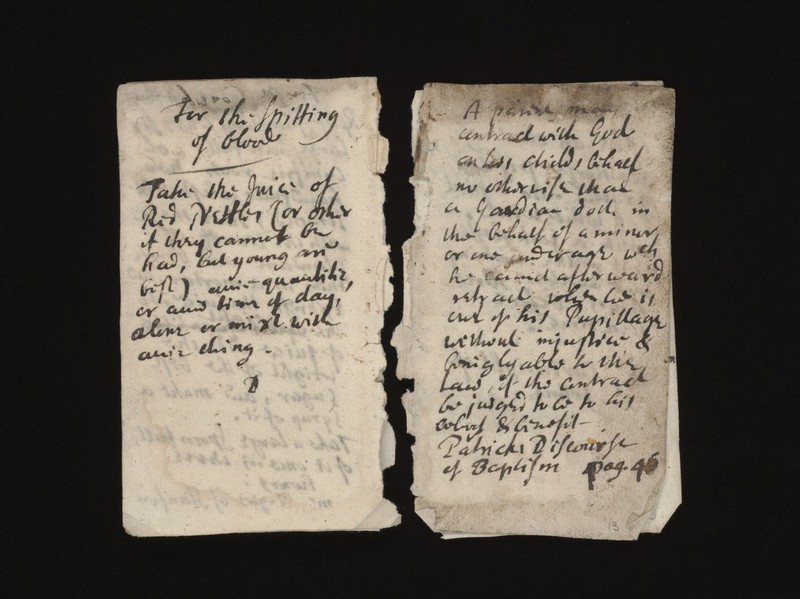 For the Spitting
of blood
Take the Juice of
Red Nettles (or other
if they cannot be
had, but young are
best) anie quantitie,
or anie time of day,
alone or mixt with
anie thing.
A parent may
contract with God
on his childs behalf
no otherwise than
a Gardian doth in
the behalf of a minor
or one under age wch
he cannot afterward
retract when he is
out of his Pupillage
without injustice &
being lyable to the
Law, if the contract
be judged to be to his
behoof & benefit
Patricks Discourse
of Baptism pag. 46
13